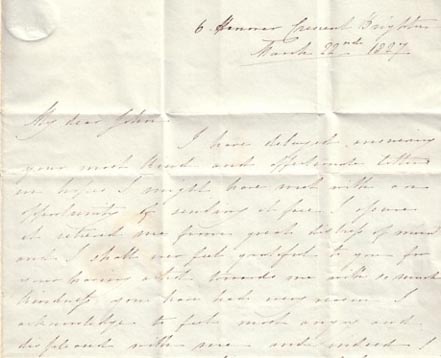 6 Hanover Crescent Brighton
March 22nd 1827
My dear John
I have delayed answering
your most kind and affectionate letter
in hopes I might have met with an
opportunity of sending it free I assure
it relieved me from great distress of mind
and I shall ever feel grateful to you for
your having acted towards me with so much
kindness you have had every reason I
acknowledge to feel most angry and
displeased with me and indeed I